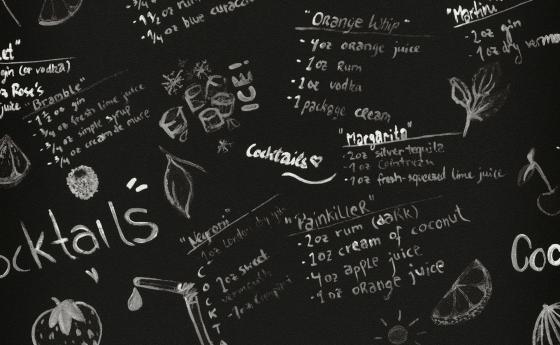 1/2 oz rum
1/4 oz blue curacao
"Orange Whip"
4oz orange juice
1oz Rum
1oz vodka
1package cream
"Martini
2oz gin
dry verm
et"
gin (or vodka)
Rose's
juice
"Bramble"
1 1/2 oz gin
3/4 oz fresh lime juice
3/4 oz simple syrup
3/4 oz creamdemure
ICE!
"Margarita"
2oz silver tequila
1oz Cointreau
1oz fresh-squeezed lime juice
Cocktails
ocktails
"Negroni"
1oz London dry gin
1oz sweet
vermouth
1oz Campari
COCKT
"PainkilleR"
2oz rum (daRk)
1oz cream of coconut
4oz apple juice
1oz orange juice
Coc